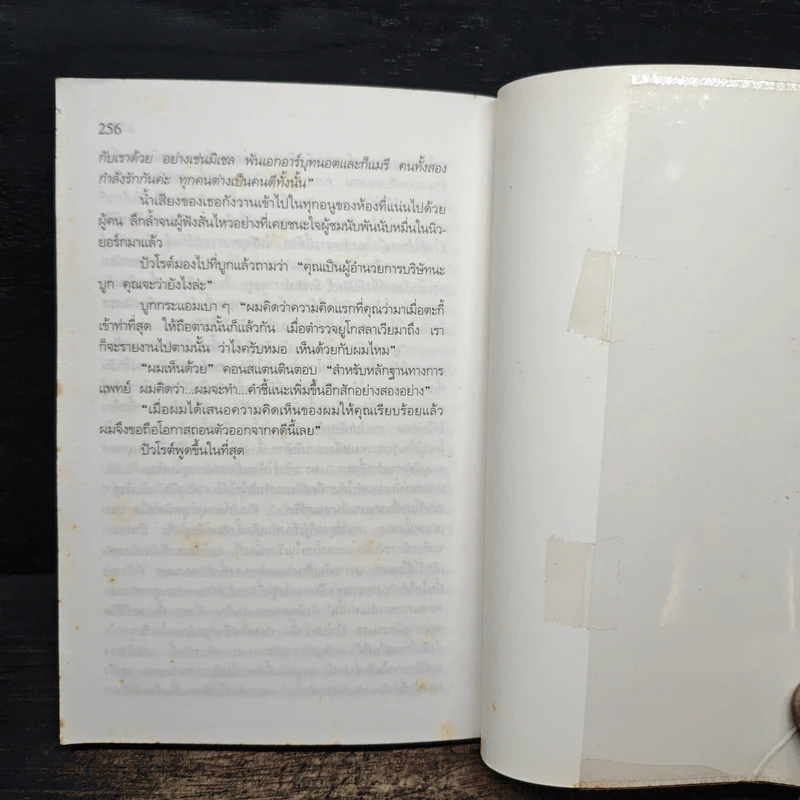 256
กับเราด้วย อย่างเช่นมิเชล พันเอกอาร์บุทนอตและก็แมรี คนทั้งสอง
กำลังรักกันค่ะ ทุกคนต่างเป็นคนดีทั้งนั้น”
น้ำเสียงของเธอกังวานเข้าไปในทุกอนูของห้องที่แน่นไปด้วย
ผู้คน ลึกล้ำจนผู้ฟังสั่นไหวอย่างที่เคยชนะใจผู้ชมนับพันนับหมื่นในนิว-
ยอร์กมาแล้ว
ปัวโรต์มองไปที่บูกแล้วถามว่า “คุณเป็นผู้อำนวยการบริษัทนะ
บูก คุณจะว่ายังไงล่ะ”
บูกกระแอมเบา ๆ “ผมคิดว่าความคิดแรกที่คุณว่ามาเมื่อตะกี้
เข้าท่าที่สุด ให้ถือตามนั้นก็แล้วกัน เมื่อตำรวจยูโกสลาเวียมาถึง เรา
ก็จะรายงานไปตามนั้น ว่าไงครับหมอ เห็นด้วยกับผมไหม”
“ผมเห็นด้วย” คอนสแตนตินตอบ “สำหรับหลักฐานทางการ
แพทย์ ผมคิดว่า...ผมจะทำ...คำชี้แนะเพิ่มขึ้นอีกสักอย่างสองอย่าง”
“เมื่อผมได้เสนอความคิดเห็นของผมให้คุณเรียบร้อยแล้ว
ผมจึงขอถือโอกาสถอนตัวออกจากคดีนี้เลย”
ปัวโรต์พูดขึ้นในที่สุด